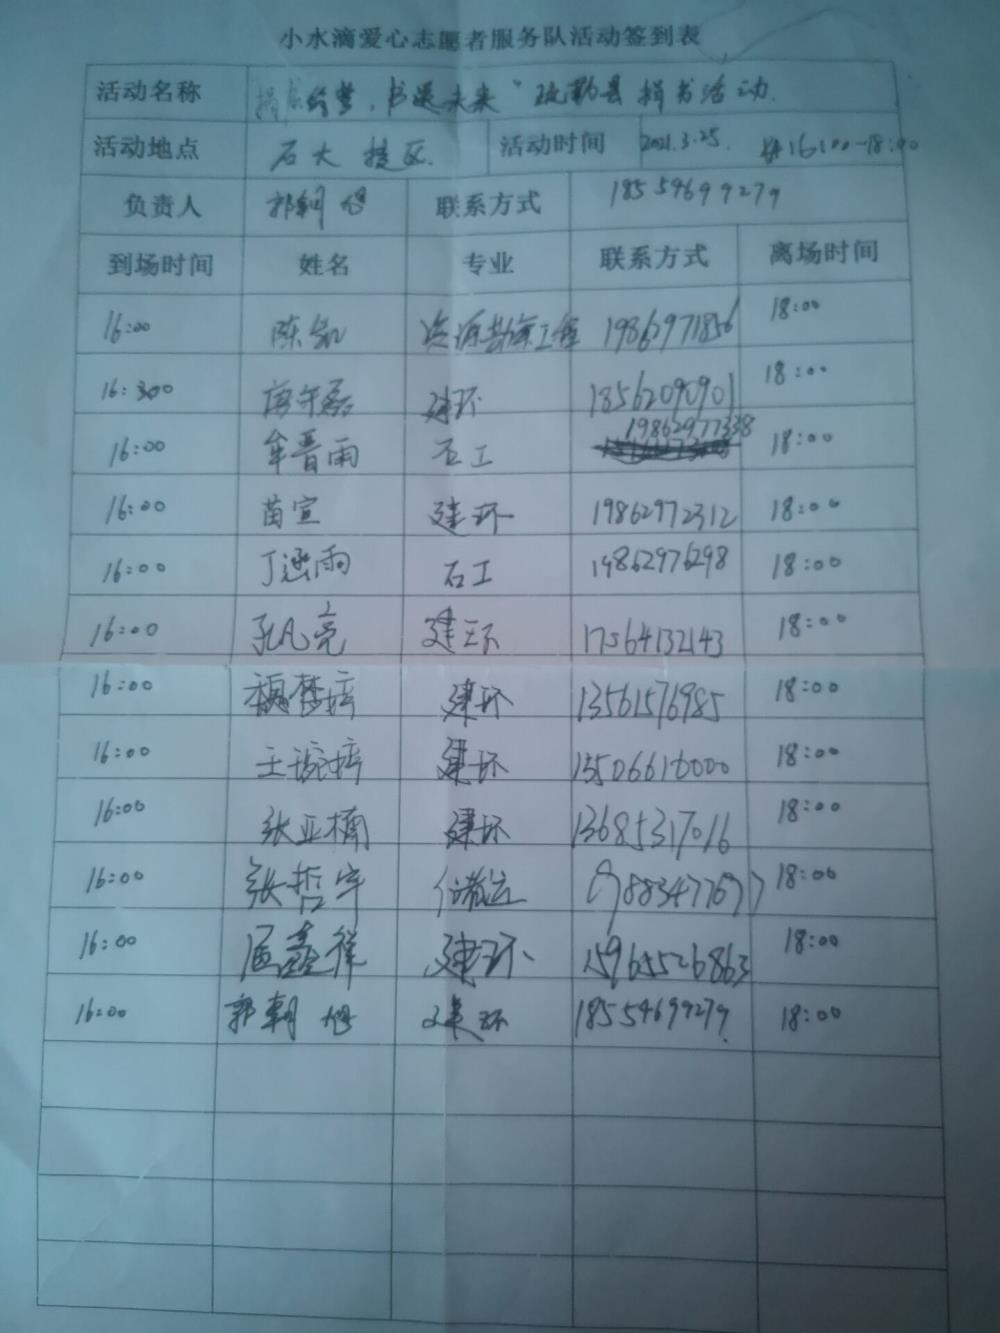 小水滴爱心志愿者服务队活动签到表
活动名称 书送未来"疏勒县捐书活动.
活动地点 石大校区. 活动时间 2021.3.25. 16:00-18:00
负责人 郭朝旭 联系方式 18554699279
到场时间 姓名 专业 联系方式 离场时间
16:00 陈凯 资源勘查工程 19863971856 18:00
16:300 唐午磊 建环 18562090901 18:00
16:00 牟晋雨 石工 19862977338 18:00
16:00 苗宣 建环 19862972312 18:00
16:00 丁逸雨 石工 19862976298 18:00
16:00 孔凡亮 建环 17564132143 18:00
16:00 魏梦婷 建环 13561576985 18:00
16:00 王婷 建环 15506616000 18:00
16:00 张亚楠 建环 13685317016 18:00
16:00 张哲宇 储运 19883477697 18:00
16:00 屈鑫祥 建环 15965526863 18:00
16:00 郭朝旭 建环 18554699279 18:00